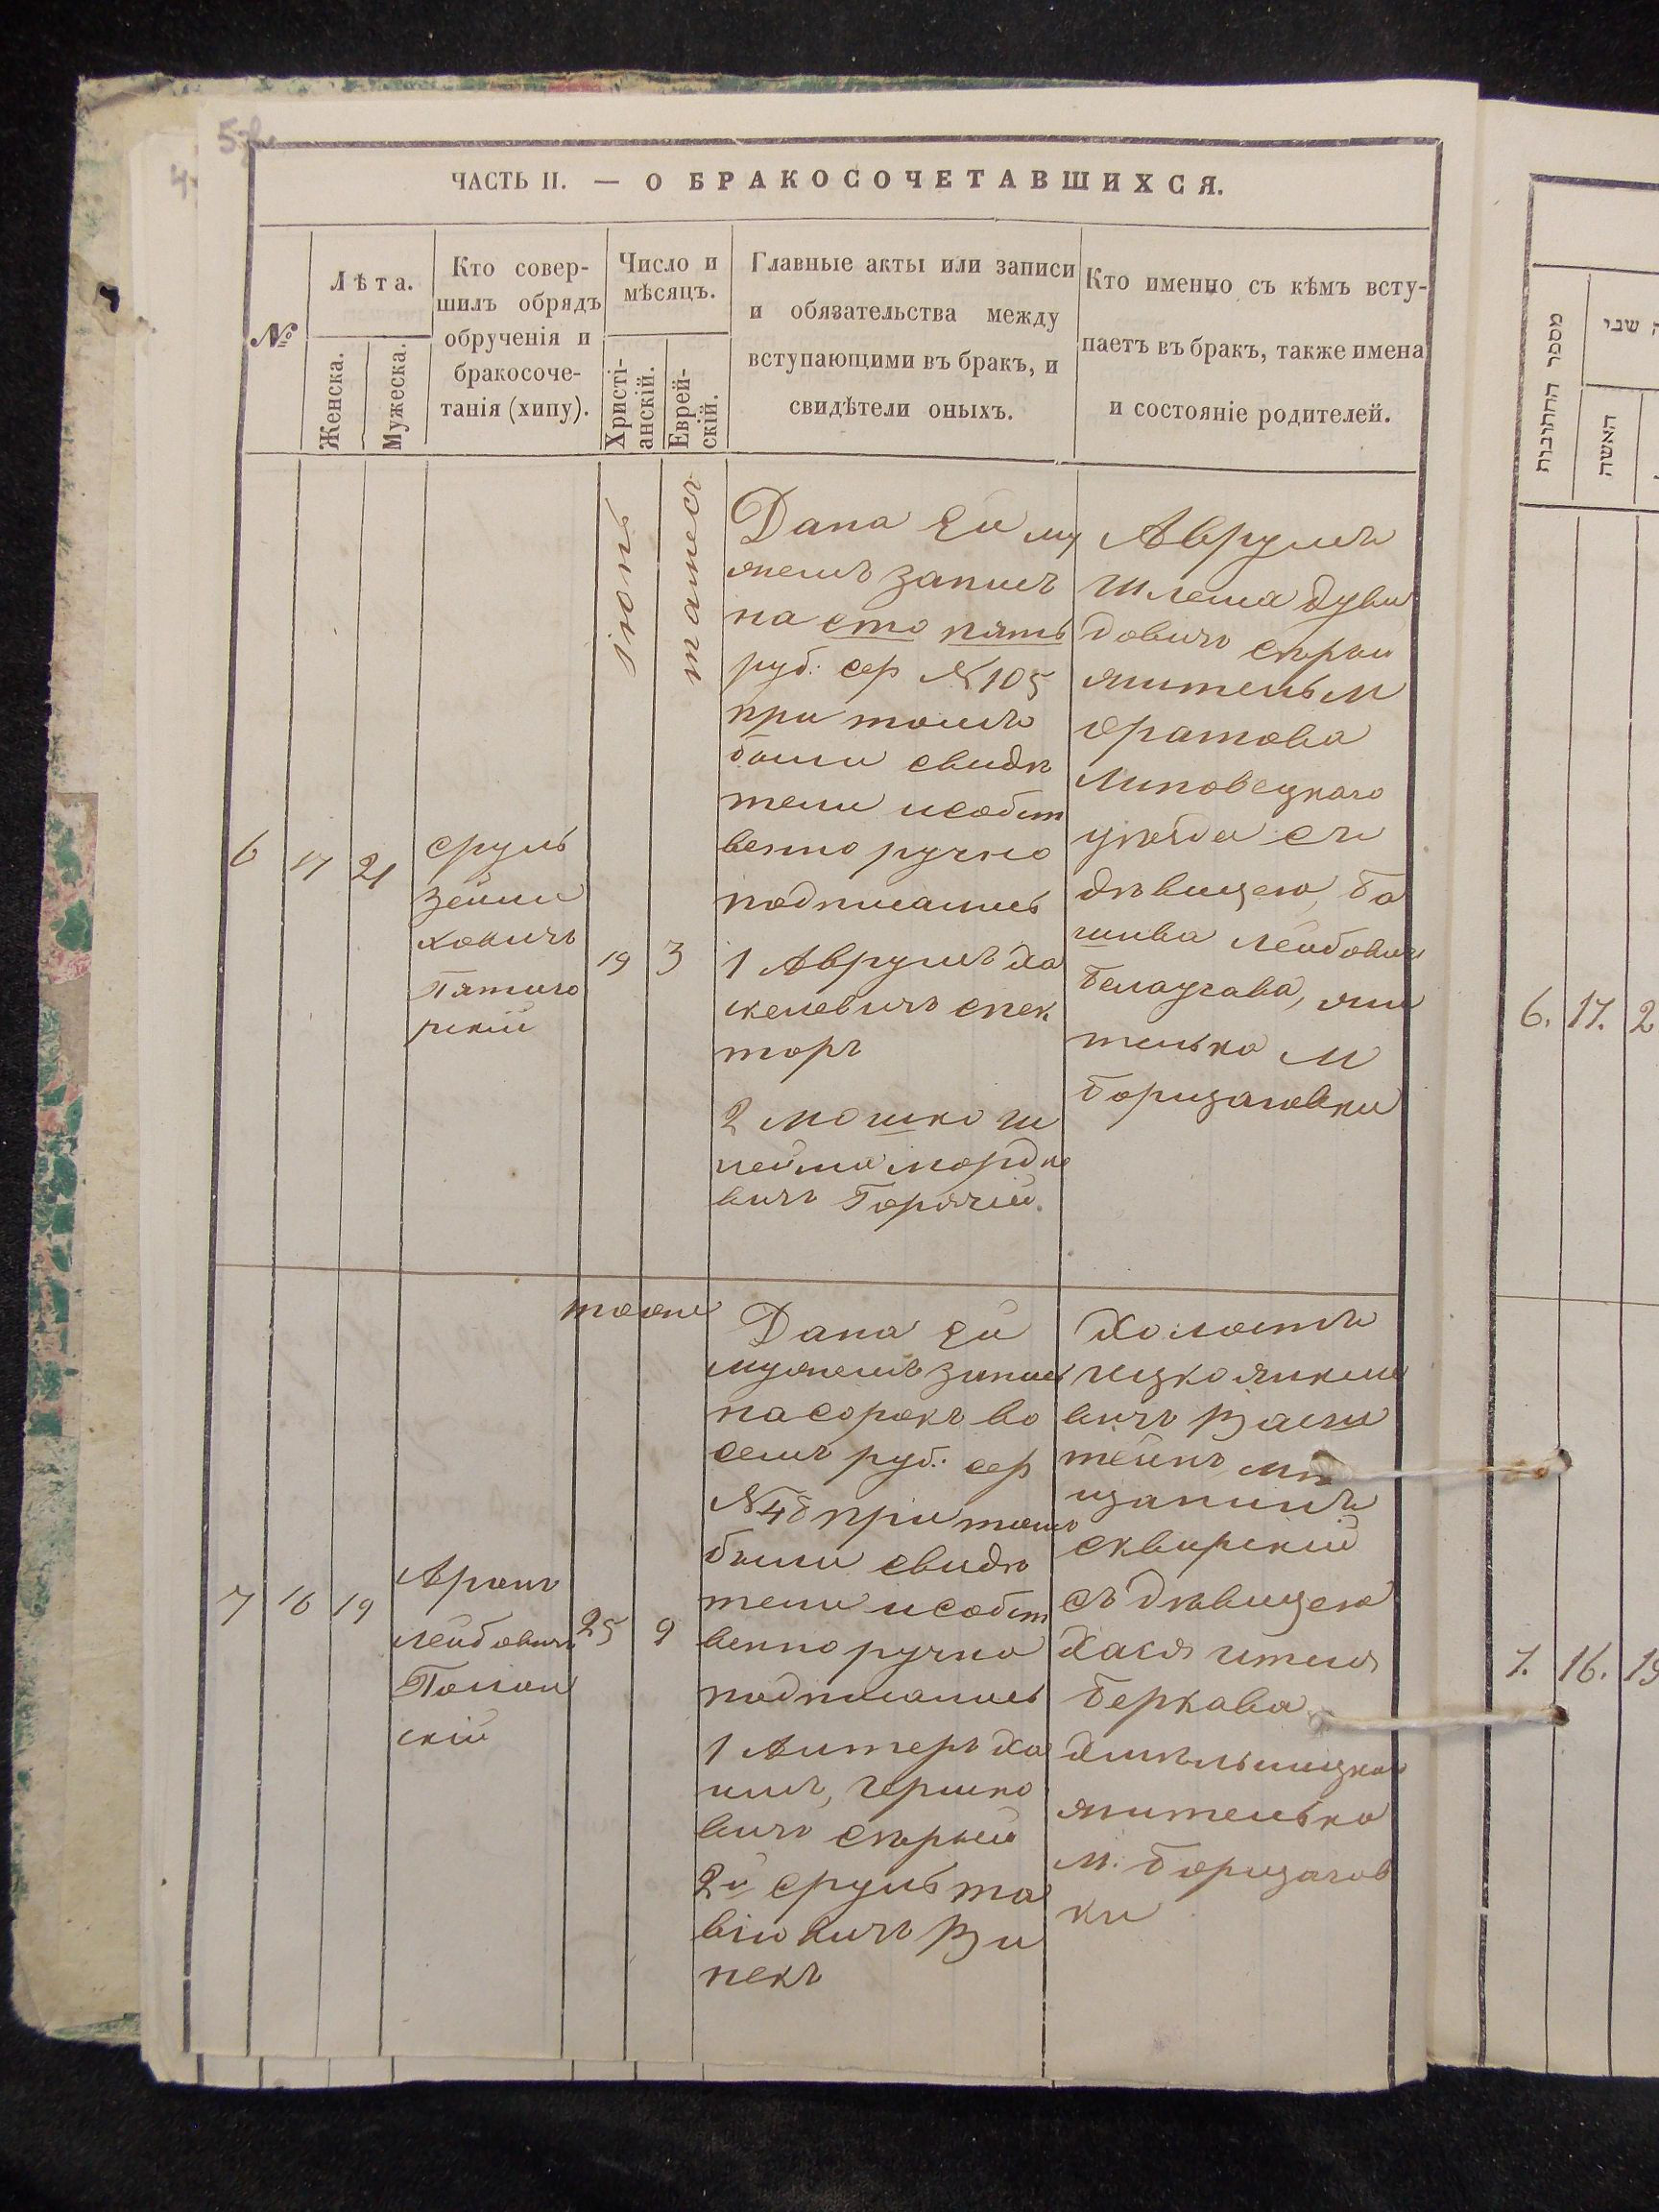 ЧАСТЬ II. — О БРАКОСОЧЕТАВШИХСЯ.
№
Лѣта.
Женска.
Мужеска.
Кто совер-
шилъ обрядъ
обрученія и
бракосоче-
танія (хипу).
Число и
мѣсяцъ.
Христі-
анскій.
Еврей-
скій.
Главные акты или записи
и обязательства между
вступающими въ бракъ, и
свидѣтели оныхъ.
Кто именно съ кѣмъ всту-
паетъ въ бракъ, также имена
и состояніе родителей.
6
17
21
сруль
Зейли
ховичъ
Пятиго
рскій
іюнь
19
тамесъ
3
Дана Ей му
жемъ запись
на сто пять
руб: сер № 105
при томъ
были свидѣ
тели и собст
венно ручно
подписались
1 Аврумъ Ха
скелевичъ спек
торъ
2 мошко ш
лейма мордко
вичъ Горячій.
Аврумъ
шлема дуви
довичъ
житель м
оратова
Липовецкаго
уѣзда съ
дѣвицею, Ба
шива Лейбович
жи
телька м
борщаговки
7
16
19
Аронъ
Лейбовичъ
Полон
скій
25
9
Дана Ей
мужемъ запись
на сорокъ во
семъ руб: сер
№ 48 при томъ
были свидѣ
тели и собст
венно ручно
подписались
1 Алтеръ Ха
имъ, гершко
вичъ
2й сруль
Холостъ
ицко янкеле
вичъ
мѣ
щанинъ
сквирскій
съ дѣвицею
Хася ителя
беркова
хмѣльницкая
жителька
м. борщагов
ки
מספר החתונות
האשה
6.
17.
2
7.
16.
19